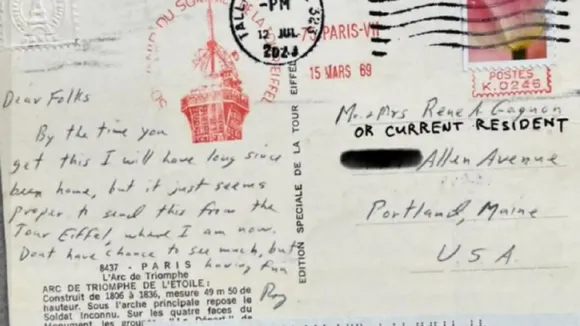 TALL
-PM
12 JUL
2023
323
DU SOM
DE LA TOUR EIFFEL
75 PARIS-VII
15 MARS 69
POSTES
K.0246
Dear Folks
By the time you
get this I will have long since
been home, but it just seems
proper to send this from the
Tour Eiffel, where I am now.
Dont have chance to see much, but
having fun
Roy
8437 - PARIS
L'Arc de Triomphe
ARC DE TRIOMPHE DE L'ETOILE:
Construit de 1806 à 1836, mesure 49 m 50 de
hauteur. Sous l'arche principale repose le
Soldat Inconnu. Sur les quatre faces du
EDITION SPECIALE DE LA TOUR EIFFEL
Mr. & Mrs Rene A. Gagnon
OR CURRENT RESIDENT
Allen Avenue
Portland, Maine
U.S.A.